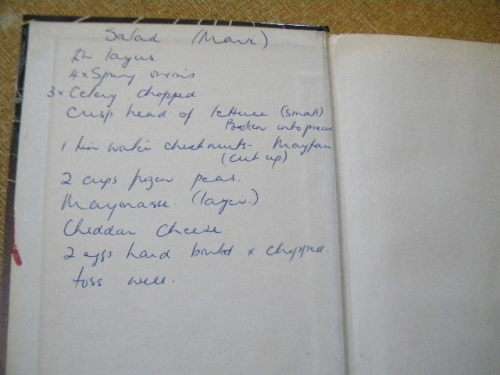 Salad (Mavis)
In layers
4 x Spring onions
3 x Celery chopped
Crisp head of lettuce (small)
Broken into pieces
1 tin water chestnuts -
(cut up)
2 cups frozen peas.
Mayonasse (layer.)
Cheddar Cheese
2 eggs hard boiled x chopped.
toss well.